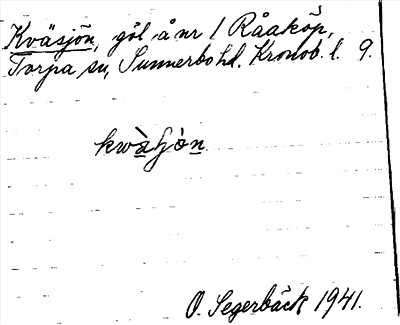 Kväsjön, göl å nr 1 Råaköp,
Torpa sn, Sunnerbo hd. Kronob. l. 9.
kwàʃjòn
O. Segerbäck 1941.